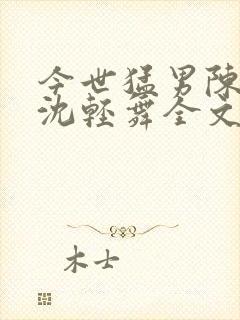 今世猛男陈
沈轻舞全文
木士